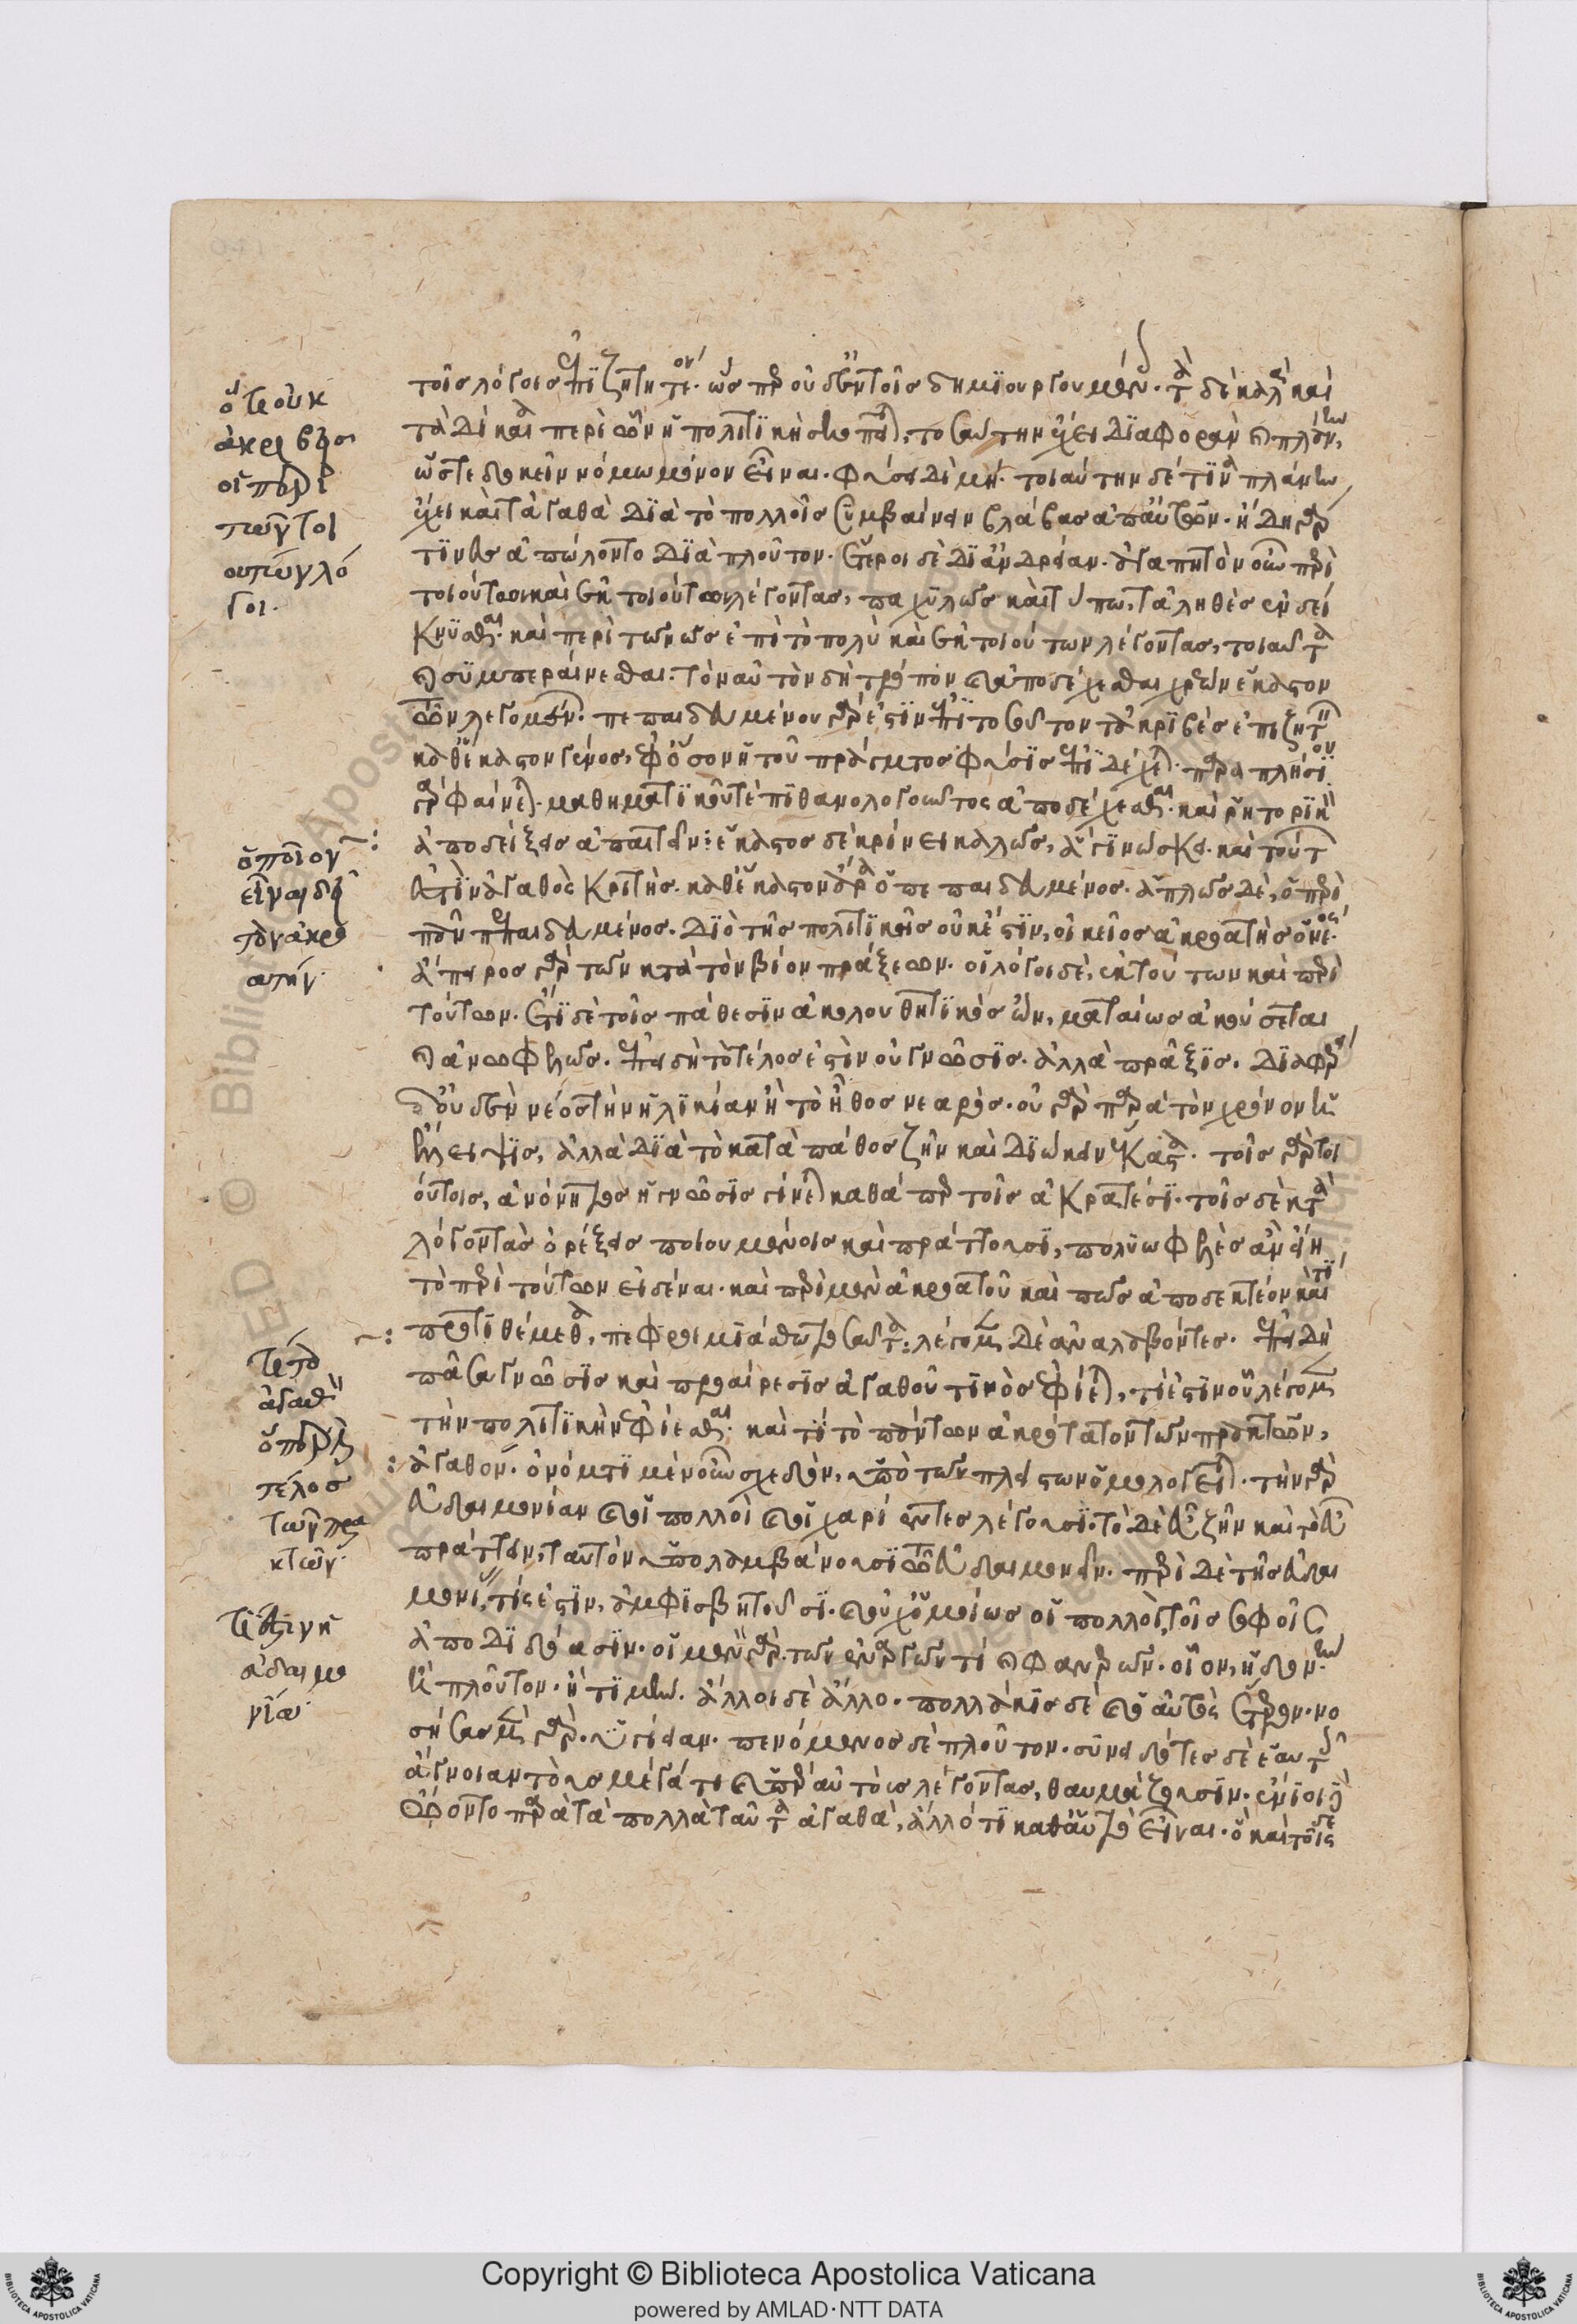 ὅτι οὐκ
ἀκριβεῖς
οἱ περὶ
πάντοι
λό
γοι.
τοῖς λόγοις ἐπιζητητέον. ὥσπερ οὐδ' ἐν τοῖς δημιουργουμένοις. τὰ δὲ καλὰ καὶ
τὰ δίκαια περὶ ὧν ἡ πολιτικὴ σκοπεῖται, τοσαύτην ἔχει διαφορὰν καὶ πλάνην,
ὥστε δοκεῖν νόμῳ μόνον εἶναι. φύσει δὲ μή. τοιαύτην δέ τινα πλάνην
ἔχει καὶ τἀγαθὰ διὰ τὸ πολλοῖς συμβαίνειν βλάβας ἀπ' αὐτῶν. ἤδη γάρ
τινες ἀπώλοντο διὰ πλοῦτον. ἕτεροι δὲ δι' ἀνδρείαν. ἀγαπητὸν οὖν περὶ
τοιούτων καὶ ἐκ τοιούτων λέγοντας, παχυλῶς καὶ τύπῳ, τἀληθὲς ἐνδεί
κνυσθαι. καὶ περὶ τῶν ὡς ἐπὶ τὸ πολὺ καὶ ἐκ τοιούτων λέγοντας, τοιαῦτα
καὶ συμπεραίνεσθαι. τὸν αὐτὸν δὴ τρόπον καὶ ἀποδέχεσθαι χρεὼν ἕκαστον
τῶν λεγομένων. πεπαιδευμένου γάρ ἐστιν ἐπὶ τοσοῦτον τἀκριβὲς ἐπιζητεῖν
καθ' ἕκαστον γένος, ἐφ' ὅσον ἡ τοῦ πράγματος φύσις ἐπιδέχεται. παραπλήσιον
γὰρ φαίνεται. μαθηματικοῦ τε πιθανολογοῦντος ἀποδέχεσθαι. καὶ ῥητορικὸν
ἀποδείξεις ἀπαιτεῖν: ἕκαστος δὲ κρίνει καλῶς, ἃ γινώσκει. καὶ τούτων
ἐστὶν ἀγαθὸς κριτής. καθ' ἕκαστον ἄρα ὁ πεπαιδευμένος. ἁπλῶς δὲ, ὁ περὶ
πᾶν πεπαιδευμένος. διὸ τῆς πολιτικῆς οὐκ ἔστιν, οἰκεῖος ἀκροατὴς ὁ νέος.
ἄπειρος γὰρ τῶν κατὰ τὸν βίον πράξεων. οἱ λόγοι δὲ, ἐκ τούτων καὶ περὶ
τούτων. ἔτι δὲ τοῖς πάθεσιν ἀκολουθητικὸς ὤν, ματαίως ἀκούσεται
καὶ ἀνωφελῶς. ἐπειδὴ τὸ τέλος ἐστὶν οὐ γνῶσις. ἀλλὰ πρᾶξις. διαφέρει
δ' οὐδὲν νέος τὴν ἡλικίαν ἢ τὸ ἦθος νεαρός. οὐ γὰρ παρὰ τὸν χρόνον ἡ
ἔλλειψις, ἀλλὰ διὰ τὸ κατὰ πάθος ζῆν καὶ διώκειν ἕκαστα. τοῖς γὰρ τοι
ούτοις, ἀνόνητος ἡ γνῶσις γίνεται καθάπερ τοῖς ἀκρατέσι. τοῖς δὲ κατὰ
λόγον τὰς ὀρέξεις ποιουμένοις καὶ πράττουσι, πολυωφελὲς ἂν εἴη
τὸ περὶ τούτων εἰδέναι. καὶ περὶ μὲν ἀκροατοῦ καὶ πῶς ἀποδεκτέον καὶ τί
προτιθέμεθα, πεφροιμιάσθω τοσαῦτα: λέγομεν δὲ ἀναλαβόντες. ἐπειδὴ
πᾶσα γνῶσις καὶ προαίρεσις ἀγαθοῦ τινὸς ἐφίεται, τί ἐστιν οὗ λέγομεν
τὴν πολιτικὴν ἐφίεσθαι. καὶ τί τὸ πάντων ἀκρότατον τῶν πρακτῶν,
ἀγαθόν. ὀνόματι μὲν οὖν σχεδὸν, ὑπὸ τῶν πλείστων ὁμολογεῖται. τὴν γὰρ
εὐδαιμονίαν καὶ οἱ πολλοὶ καὶ οἱ χαρίεντες λέγουσι. τὸ δὲ εὖ ζῆν καὶ τὸ εὖ
πράττειν, ταυτὸν ὑπολαμβάνουσι τῷ εὐδαιμονεῖν. περὶ δὲ τῆς εὐδαι
μονίας, τίς ἐστιν, ἀμφισβητοῦσι. καὶ οὐχ ὁμοίως οἱ πολλοὶ τοῖς σοφοῖς
ἀποδιδόασιν. οἱ μὲν γὰρ. τῶν ἐναργῶν τί καὶ φανερῶν. οἷον, ἡδονὴν
ἢ πλοῦτον. ἢ τιμήν. ἄλλοι δὲ ἄλλο. πολλάκις δὲ καὶ αὐτὸς ἕτερον. νο
σήσας μὲν γὰρ. ὑγίειαν. πενόμενος δὲ πλοῦτον. συνειδότες δὲ ἑαυτοῖς
ἄγνοιαν τοὺς μέγα τι καὶ ὑπὲρ αὐτοὺς λέγοντας, θαυμάζουσιν. ἔνιοι δ'
ᾤοντο παρὰ τὰ πολλὰ ταῦτα ἀγαθὰ, ἄλλό τι καθ' αὑτὸ εἶναι. ὃ καὶ τοῖσδε
ὁποῖον
εἶναι δεῖ
τὸν ἀκρο
ατήν.
τί τὸ
ἀγαθὸν
ὅπερ
τέλος
τῶν πρα
κτῶν.
τί ἐστιν ἡ
εὐδαιμο
νία.